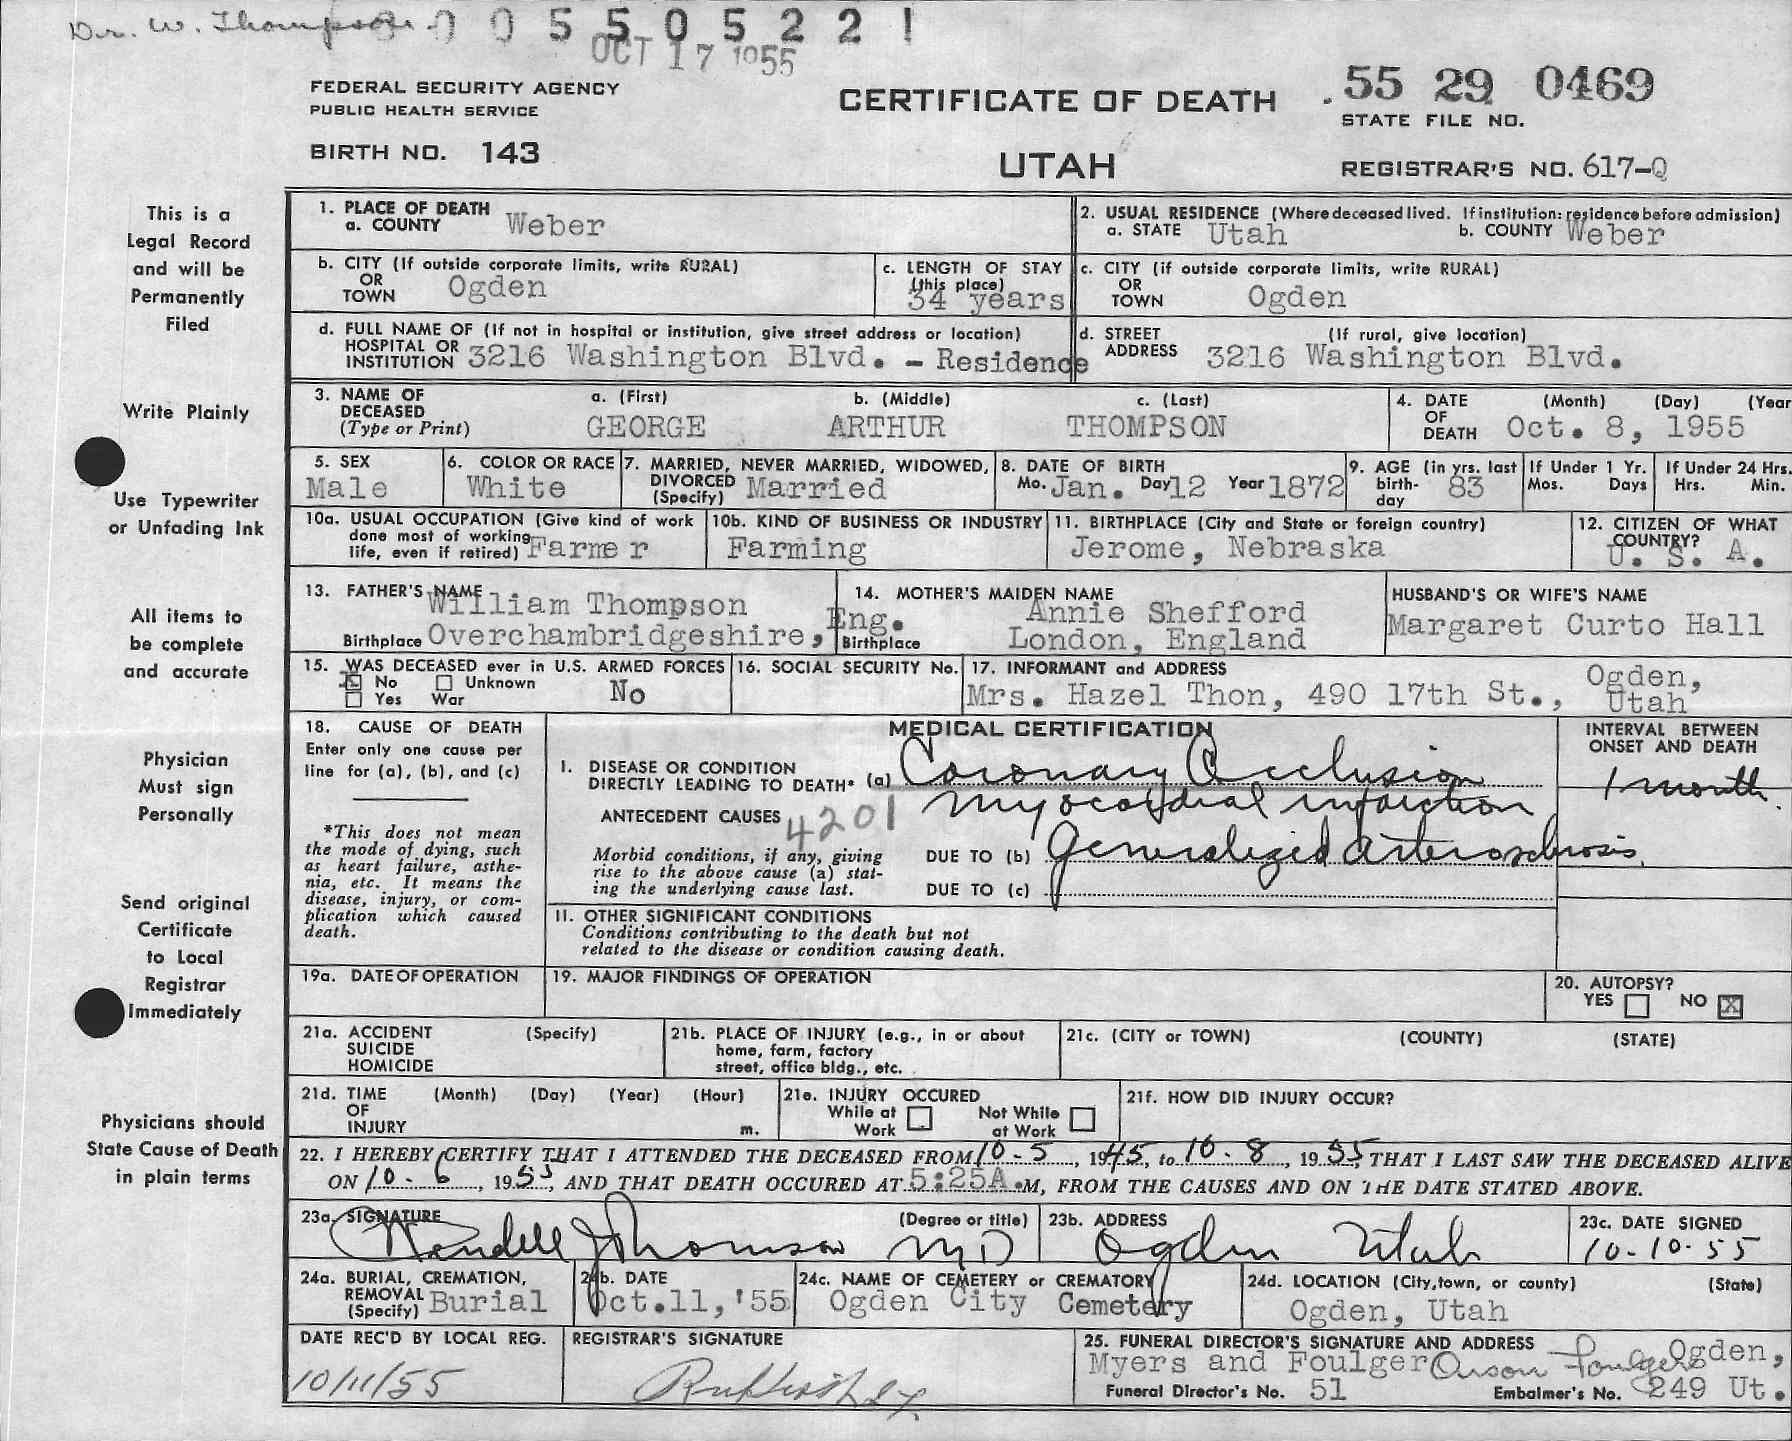 Dr. W. Thompson
0 0 5 5 0 5 2 2 1
OCT 17 1955
FEDERAL SECURITY AGENCY
PUBLIC HEALTH SERVICE
BIRTH NO. 143
CERTIFICATE OF DEATH
UTAH
55 29 0469
STATE FILE NO.
REGISTRAR'S NO. 617-Q
This is a
Legal Record
and will be
Permanently
Filed
Write Plainly
Use Typewriter
or Unfading Ink
All items to
be complete
and accurate
Physician
Must sign
Personally
Send original
Certificate
to Local
Registrar
Immediately
Physicians should
State Cause of Death
in plain terms
1. PLACE OF DEATH
a. COUNTY Weber
2. USUAL RESIDENCE (Where deceased lived. If institution: residence before admission)
a. STATE Utah b. COUNTY Weber
b. CITY (If outside corporate limits, write RURAL)
OR
TOWN Ogden
c. LENGTH OF STAY
(this place)
34 years
c. CITY (if outside corporate limits, write RURAL)
OR
TOWN Ogden
d. FULL NAME OF (If not in hospital or institution, give street address or location)
HOSPITAL OR
INSTITUTION 3216 Washington Blvd. - Residence
d. STREET (If rural, give location)
ADDRESS 3216 Washington Blvd.
3. NAME OF
DECEASED
(Type or Print)
a. (First) b. (Middle) c. (Last)
GEORGE ARTHUR THOMPSON
4. DATE (Month) (Day) (Year
OF
DEATH Oct. 8, 1955
5. SEX
Male
6. COLOR OR RACE
White
7. MARRIED, NEVER MARRIED, WIDOWED,
DIVORCED
(Specify) Married
8. DATE OF BIRTH
Mo. Jan. Day 12 Year 1872
9. AGE (in yrs. last
birth-
day 83
If Under 1 Yr.
Mos. Days
If Under 24 Hrs.
Hrs. Min.
10a. USUAL OCCUPATION (Give kind of work
done most of working
life, even if retired) Farmer
10b. KIND OF BUSINESS OR INDUSTRY
Farming
11. BIRTHPLACE (City and State or foreign country)
Jerome, Nebraska
12. CITIZEN OF WHAT
COUNTRY?
U. S. A.
13. FATHER'S NAME
William Thompson
Birthplace Overchambridgeshire, Eng.
14. MOTHER'S MAIDEN NAME
Annie Shefford
Birthplace London, England
HUSBAND'S OR WIFE'S NAME
Margaret Curto Hall
15. WAS DECEASED ever in U.S. ARMED FORCES
X No Unknown
Yes War
No
16. SOCIAL SECURITY No.
17. INFORMANT and ADDRESS
Mrs. Hazel Thon, 490 17th St., Ogden,
Utah
18. CAUSE OF DEATH
Enter only one cause per
line for (a), (b), and (c)
*This does not mean
the mode of dying, such
as heart failure, asthe-
nia, etc. It means the
disease, injury, or com-
plication which caused
death.
MEDICAL CERTIFICATION
I. DISEASE OR CONDITION
DIRECTLY LEADING TO DEATH* (a) Coronary Occlusion
myocardial infarction
ANTECEDENT CAUSES 4201
Morbid conditions, if any, giving
rise to the above cause (a) stat-
ing the underlying cause last.
DUE TO (b) Generalized arterosclerosis
DUE TO (c)
INTERVAL BETWEEN
ONSET AND DEATH
1 month.
II. OTHER SIGNIFICANT CONDITIONS
Conditions contributing to the death but not
related to the disease or condition causing death.
19a. DATE OF OPERATION
19. MAJOR FINDINGS OF OPERATION
20. AUTOPSY?
YES NO X
21a. ACCIDENT (Specify)
SUICIDE
HOMICIDE
21b. PLACE OF INJURY (e.g., in or about
home, farm, factory
street, office bldg., etc.
21c. (CITY or TOWN) (COUNTY) (STATE)
21d. TIME (Month) (Day) (Year) (Hour)
OF
INJURY m.
21e. INJURY OCCURED
While at Not While
Work at Work
21f. HOW DID INJURY OCCUR?
22. I HEREBY CERTIFY THAT I ATTENDED THE DECEASED FROM 10-5, 1945, to 10-8, 1955, THAT I LAST SAW THE DECEASED ALIVE
ON 10-6, 1955, AND THAT DEATH OCCURED AT 5:25A.M, FROM THE CAUSES AND ON THE DATE STATED ABOVE.
23a. SIGNATURE (Degree or title)
Wendell J Thomson MD
23b. ADDRESS
Ogden Utah
23c. DATE SIGNED
10-10-55
24a. BURIAL, CREMATION,
REMOVAL
(Specify) Burial
24b. DATE
Oct.11,'55
24c. NAME OF CEMETERY or CREMATORY
Ogden City Cemetery
24d. LOCATION (City, town, or county) (State)
Ogden, Utah
DATE REC'D BY LOCAL REG.
10/11/55
REGISTRAR'S SIGNATURE
25. FUNERAL DIRECTOR'S SIGNATURE AND ADDRESS
Myers and Foulger Orson Foulger Ogden,
Funeral Director's No. 51 Embalmer's No. 249 Ut.